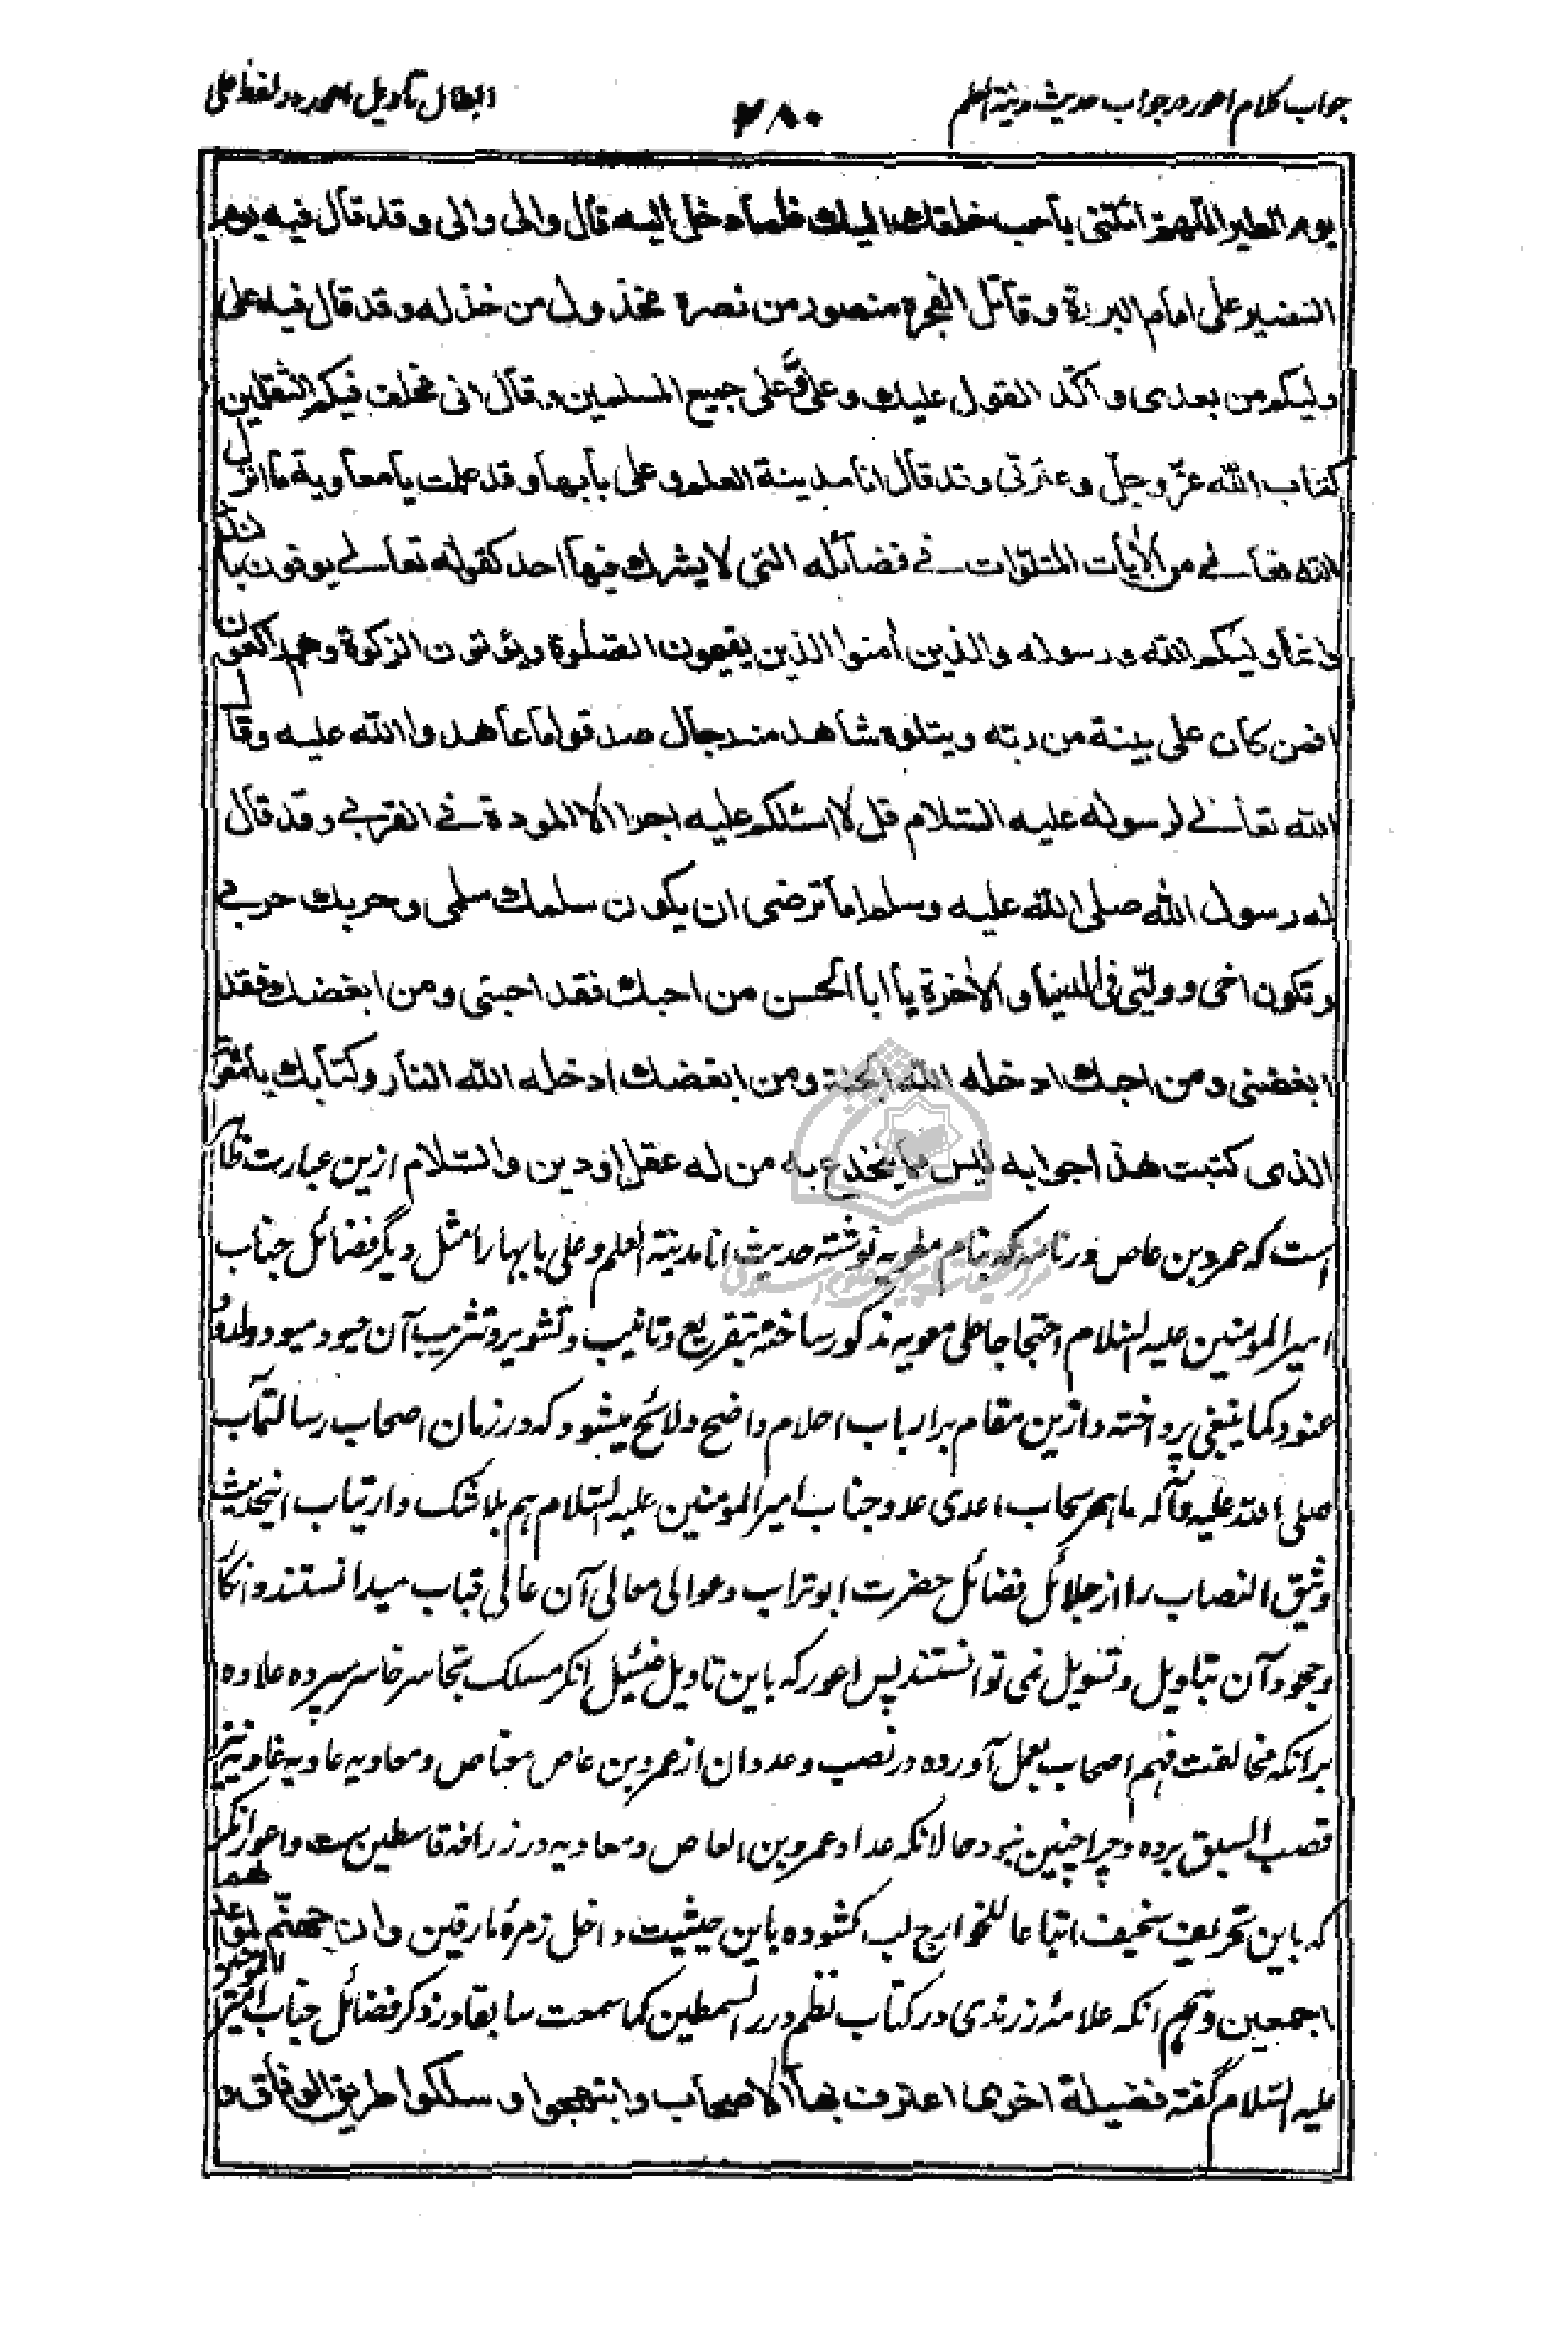 جواب كلام اعور در جواب حديث مدينة العلم
٢٨٠
ابطال تاويل اعور در لفظ على
يوم الطير اللهم ائتني بأحب خلقك اليك فلما دخل اليه قال والى والى وقد قال فيه يوم
النضير على امام البررة وقاتل الفجرة منصور من نصره مخذول من خذله وقد قال فيه على
وليكم من بعدى واكّد القول عليك وعلىّ وعلى جميع المسلمين وقال انى مخلف فيكم الثقلين
كتاب الله عزّ وجلّ وعترتي وقد قال انا مدينة العلم وعلى بابها وقد علمت يا معاوية ما انزل
الله تعالے من الأيات المتلوّات فے فضائله التى لا يشرك فيها احد كقوله تعالے يوفون بالنذر
وانما وليكم الله ورسوله والذين أمنوا الذين يقيمون الصلوة ويؤتون الزكوة وهم راكعون
افمن كان على بينة من ربّه ويتلوه شاهد منه رجال صدقوا ما عاهدوا الله عليه وقال
الله تعالے لرسوله عليه السّلام قل لا اسئلكم عليه اجرا الا المودة فے القربے وقد قال
له رسول الله صلى الله عليه وسلم اما ترضى ان يكون سلمك سلمى وحربك حربے
وتكون اخى ووليّى فى الدنيا والأخرة يا ابا الحسن من احبك فقد احبنى ومن ابغضك فقد
ابغضنى ومن احبك ادخله الله الجنة ومن ابغضك ادخله الله النار وكتابك يا معوية
الذى كتبت هذا جوابه ليس مما ينخدع به من له عقل او دين والسّلام ازين عبارت ظاهر
است كه عمرو بن عاص در نامه كه بنام معويه نوشته حديث انا مدينة العلم وعلى بابها را مثل ديگر فضائل جناب
امير المومنين عليه السلام احتجاجا على معويه مذكور ساخته بتقريع وتانيب وتشوير وتثريب آن حيود ميود ولدود
عنود كما ينبغى پرداخته وازين مقام برارباب احلام واضح ولائح ميشود كه در زمان اصحاب رسالتمآب
صلى الله عليه وآله ما همر سحاب اعدى عدو جناب امير المومنين عليه السّلام هم بلا شك وارتياب اينحديث
وثيق النصاب را از جلائل فضائل حضرت ابوتراب وعوالى معالى آن عالى قباب ميدانستند وانكار
وجحود آن بتاويل وتسويل نمى توانستند پس اعور كه باين تاويل ضئيل انكر مسلك تجاسر خاسر سپرده علاوه
برانكه مخالفت فهم اصحاب بعمل آورده در نصب وعدوان از عمرو بن عاص معتاص ومعاويه عاويه غاويه نيز
قصب السبق برده وچرا چنين نبود حالانكه عداد عمرو بن العاص ومعاويه در زرافه قاسطين ست واعور انكر
كه باين تحريف سخيف اتباعا للخوارج لب كشوده باين حيثيت داخل زمرهٔ مارقين وان جهنّم لموعدهم
اجمعين وهم انكه علامهٔ زرندى در كتاب نظم درر السمطين كما سمعت سابقا در ذكر فضائل جناب امير المومنين
عليه السّلام گفته فضيلة اخرى اعترف بها الاصحاب وابتهجوا وسلكوا طريق الوفاق و